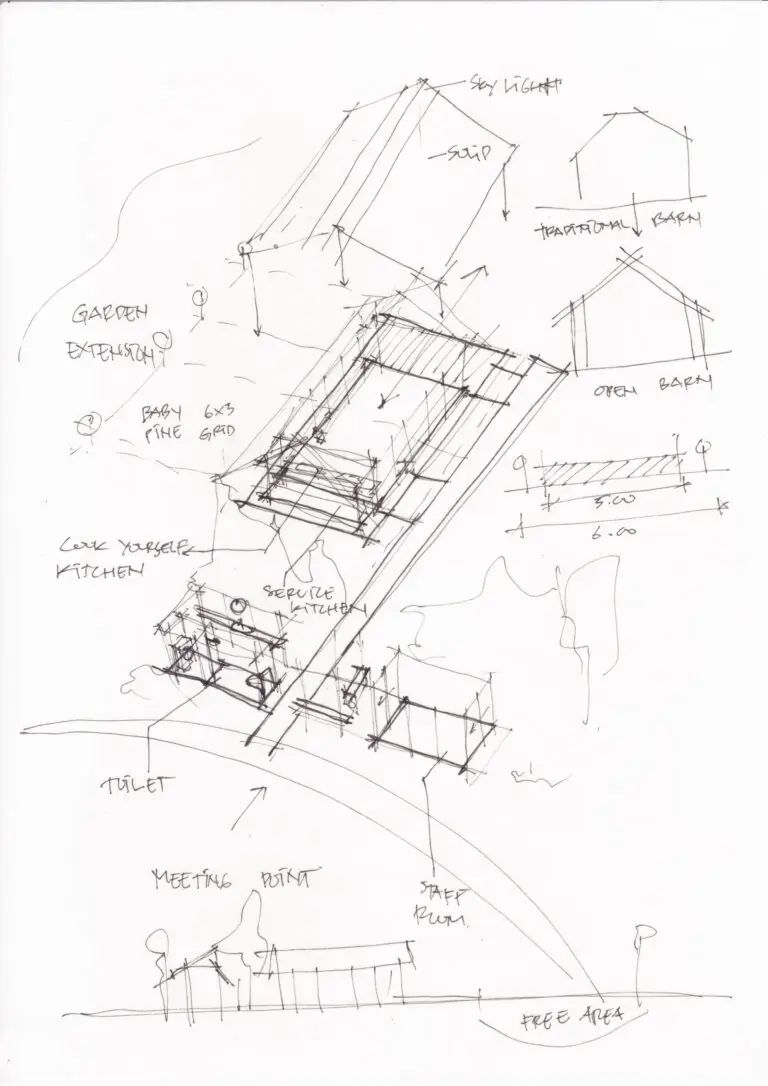 SKY LIGHT
SOLID
TRADITIONAL BARN
GARDEN
EXTENSION
OPEN BARN
BABY 6x3
PINE GRID
3.00
6.00
COOK YOURSELF
KITCHEN
SERVICE
KITCHEN
TOILET
MEETING POINT
STAFF
ROOM
FREE AREA